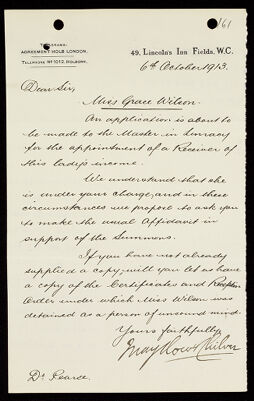 161
AGREEMENT HOLB LONDON.
TELEPHONE Nº 1012, HOLBORN.
49, Lincoln's Inn Fields, W.C.
6th October 1913.
Dear Sir,
Miss Grace Wilson.
An application is about to
be made to the Master in Lunacy
for the appointment of a Receiver of
this lady's income.
We understand that she
is under your charge, and in these
circumstances we propose to ask you
to make the usual Affidavit in
support of the Summons.
If you have not already
supplied a copy, will you let us have
a copy of the Certificates and Reception
Order under which Miss Wilson was
detained as a person of unsound mind.
Yours faithfully,
May How & Chilver
Dr. Pearce.